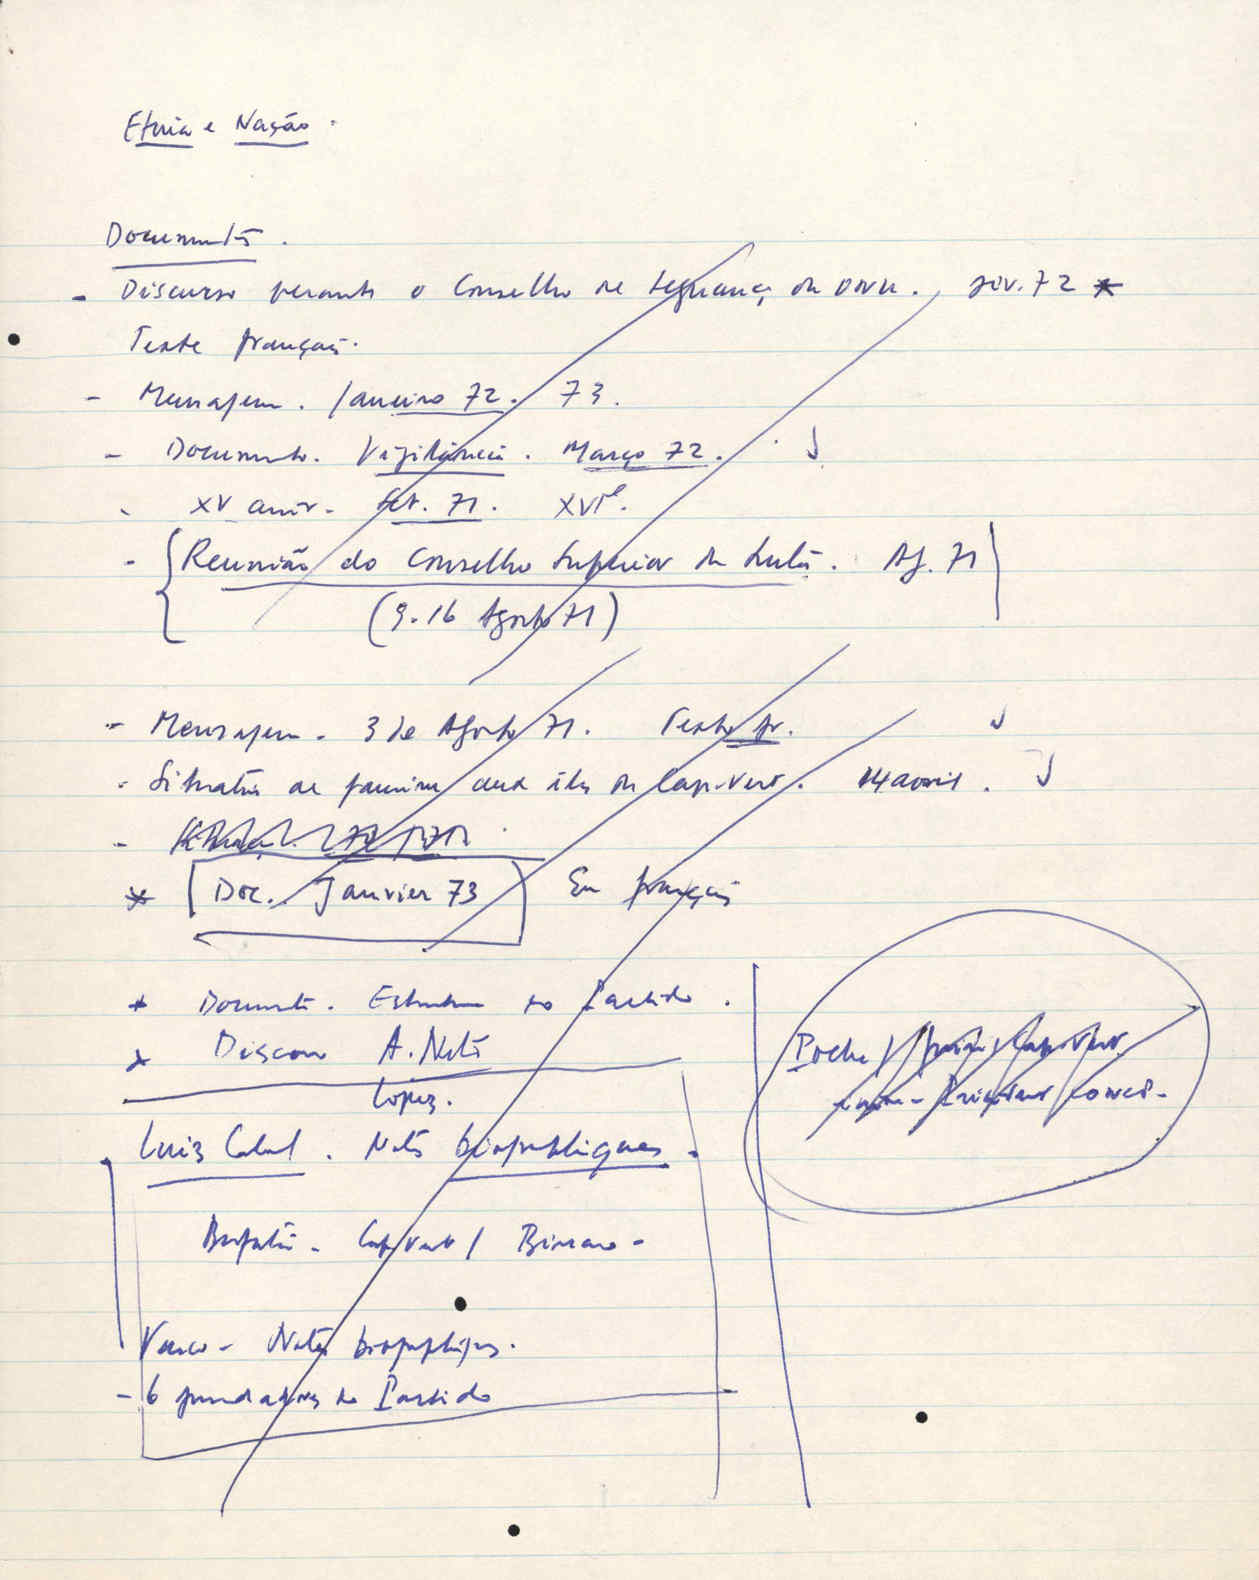 Etnia e Nação.
Documentos.
- Discurso perante o Conselho de Segurança da ONU. fév. 72 *
Texte français.
- Mensagem. Janeiro 72. 73.
- Documento. Vigilância. Março 72.
- XV aniv. Set. 71. XVIe.
- Reunião do Conselho Superior da Luta. Ag. 71
(9-16 Agosto 71)
- Mensagem - 3 de Agosto 71. Texto fr.
- Situation de famine aux îles du Cap-Vert. 14 avril.
-
* Doc. Janvier 73 En français
* Documento. Estrutura do Partido.
* Discours A. Neto
Lopez.
Luiz Cabral. Notes biographiques.
Bafatá - Cap Vert / Bissau -
Vasco - Notes biographiques.
- 6 fundadores do Partido
Poche / Guinée Cap-Vert